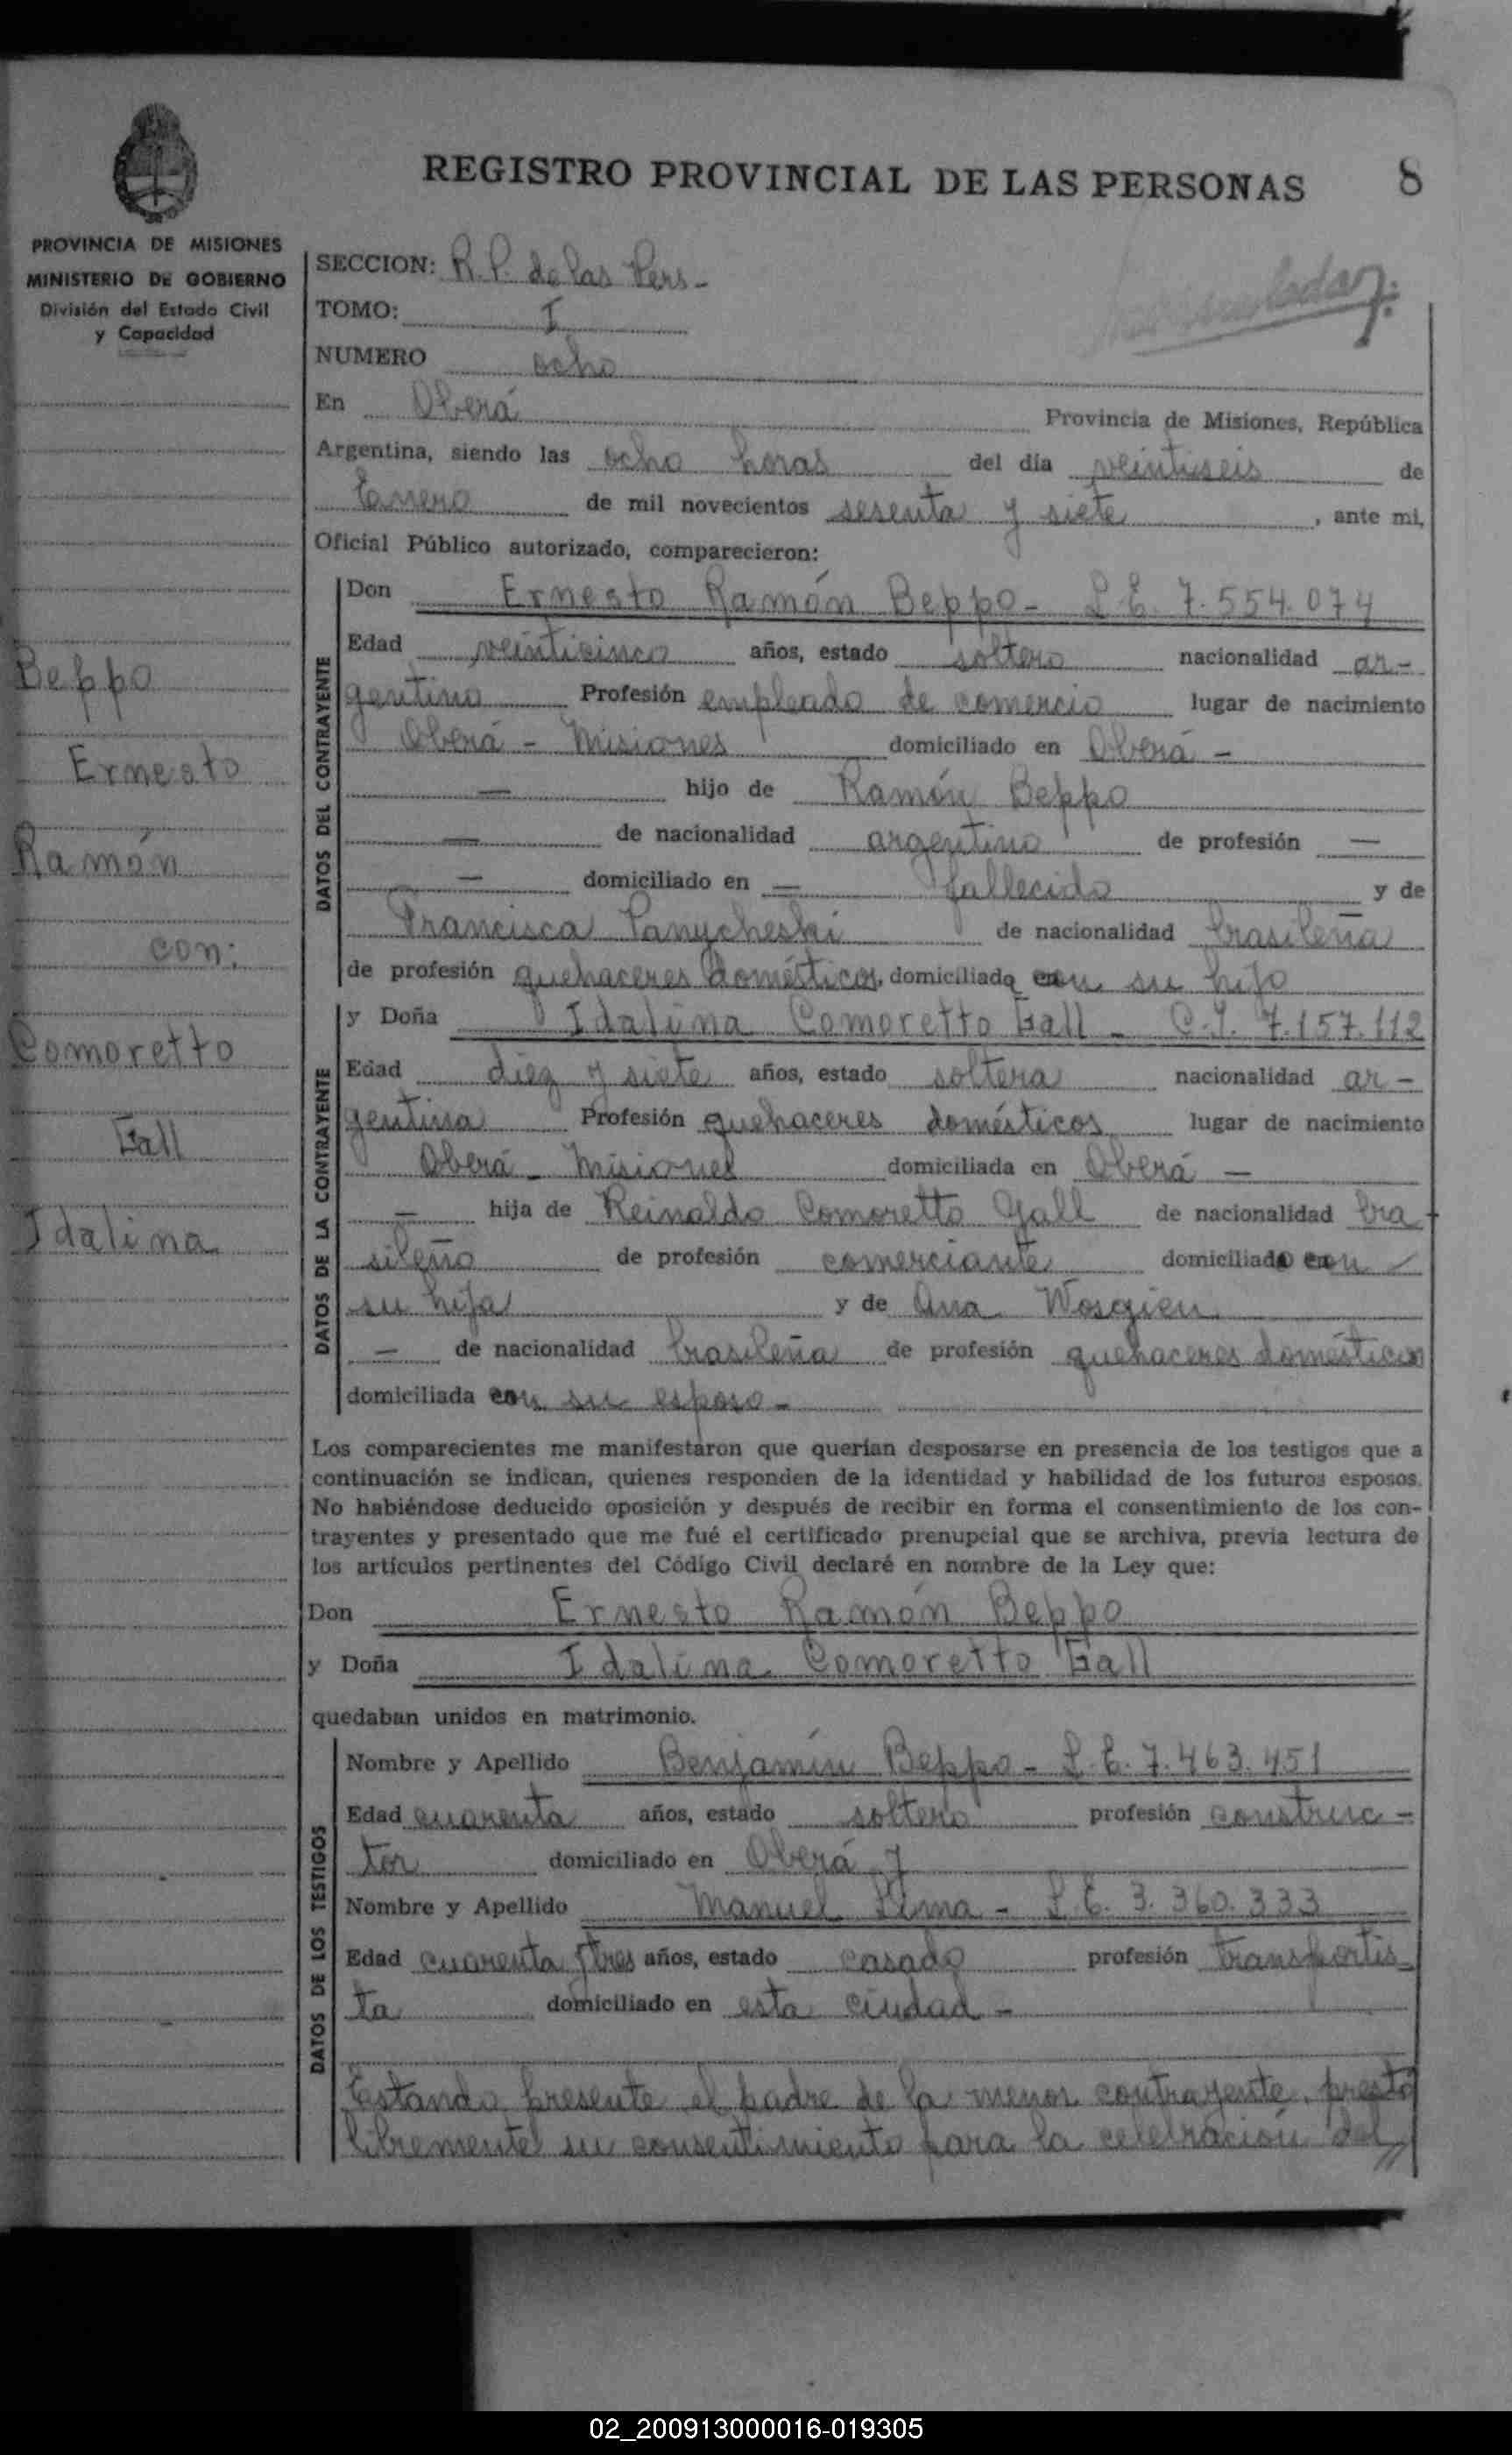 REGISTRO PROVINCIAL DE LAS PERSONAS 8
PROVINCIA DE MISIONES
MINISTERIO DE GOBIERNO
División del Estado Civil
y Capacidad
Beppo
Ernesto
Ramón
con:
Comoretto
Gall
Idalina
SECCION: R. P. de las Pers-
TOMO: I
NUMERO ocho
En Oberá Provincia de Misiones, República
Argentina, siendo las ocho horas del día veintiseis de
Enero de mil novecientos sesenta y siete, ante mi,
Oficial Público autorizado, comparecieron:
DATOS DEL CONTRAYENTE
Don Ernesto Ramón Beppo- L.E. 7.554.074
Edad veinticinco años, estado soltero nacionalidad ar-
gentino Profesión empleado de comercio lugar de nacimiento
Oberá - Misiones domiciliado en Oberá -
— hijo de Ramón Beppo
— de nacionalidad argentino de profesión —
— domiciliado en — fallecido y de
Francisca Panycheski de nacionalidad brasileña
de profesión quehaceres domésticos, domiciliada con su hijo
DATOS DE LA CONTRAYENTE
y Doña Idalina Comoretto Gall - C.I. 7.157.112
Edad diez y siete años, estado soltera nacionalidad ar-
gentina Profesión quehaceres domésticos lugar de nacimiento
Oberá - Misiones domiciliada en Oberá —
— hija de Reinaldo Comoretto Gall de nacionalidad bra
sileño de profesión comerciante domiciliado con
su hija y de Ana Wosgien
— de nacionalidad brasileña de profesión quehaceres domésticos
domiciliada con su esposo-
Los comparecientes me manifestaron que querían desposarse en presencia de los testigos que a
continuación se indican, quienes responden de la identidad y habilidad de los futuros esposos.
No habiéndose deducido oposición y después de recibir en forma el consentimiento de los con-
trayentes y presentado que me fué el certificado prenupcial que se archiva, previa lectura de
los artículos pertinentes del Código Civil declaré en nombre de la Ley que:
Don Ernesto Ramón Beppo
y Doña Idalina Comoretto Gall
quedaban unidos en matrimonio.
DATOS DE LOS TESTIGOS
Nombre y Apellido Benjamín Beppo - L.E. 7.463.451
Edad cuarenta años, estado soltero profesión construc-
tor domiciliado en Oberá y
Nombre y Apellido Manuel Lima - L.E. 3.360.333
Edad cuarenta y tres años, estado casado profesión transportis-
ta domiciliado en esta ciudad -
Estando presente el padre de la menor contrayente, prestó
libremente su consentimiento para la celebración del//
02_200913000016-019305